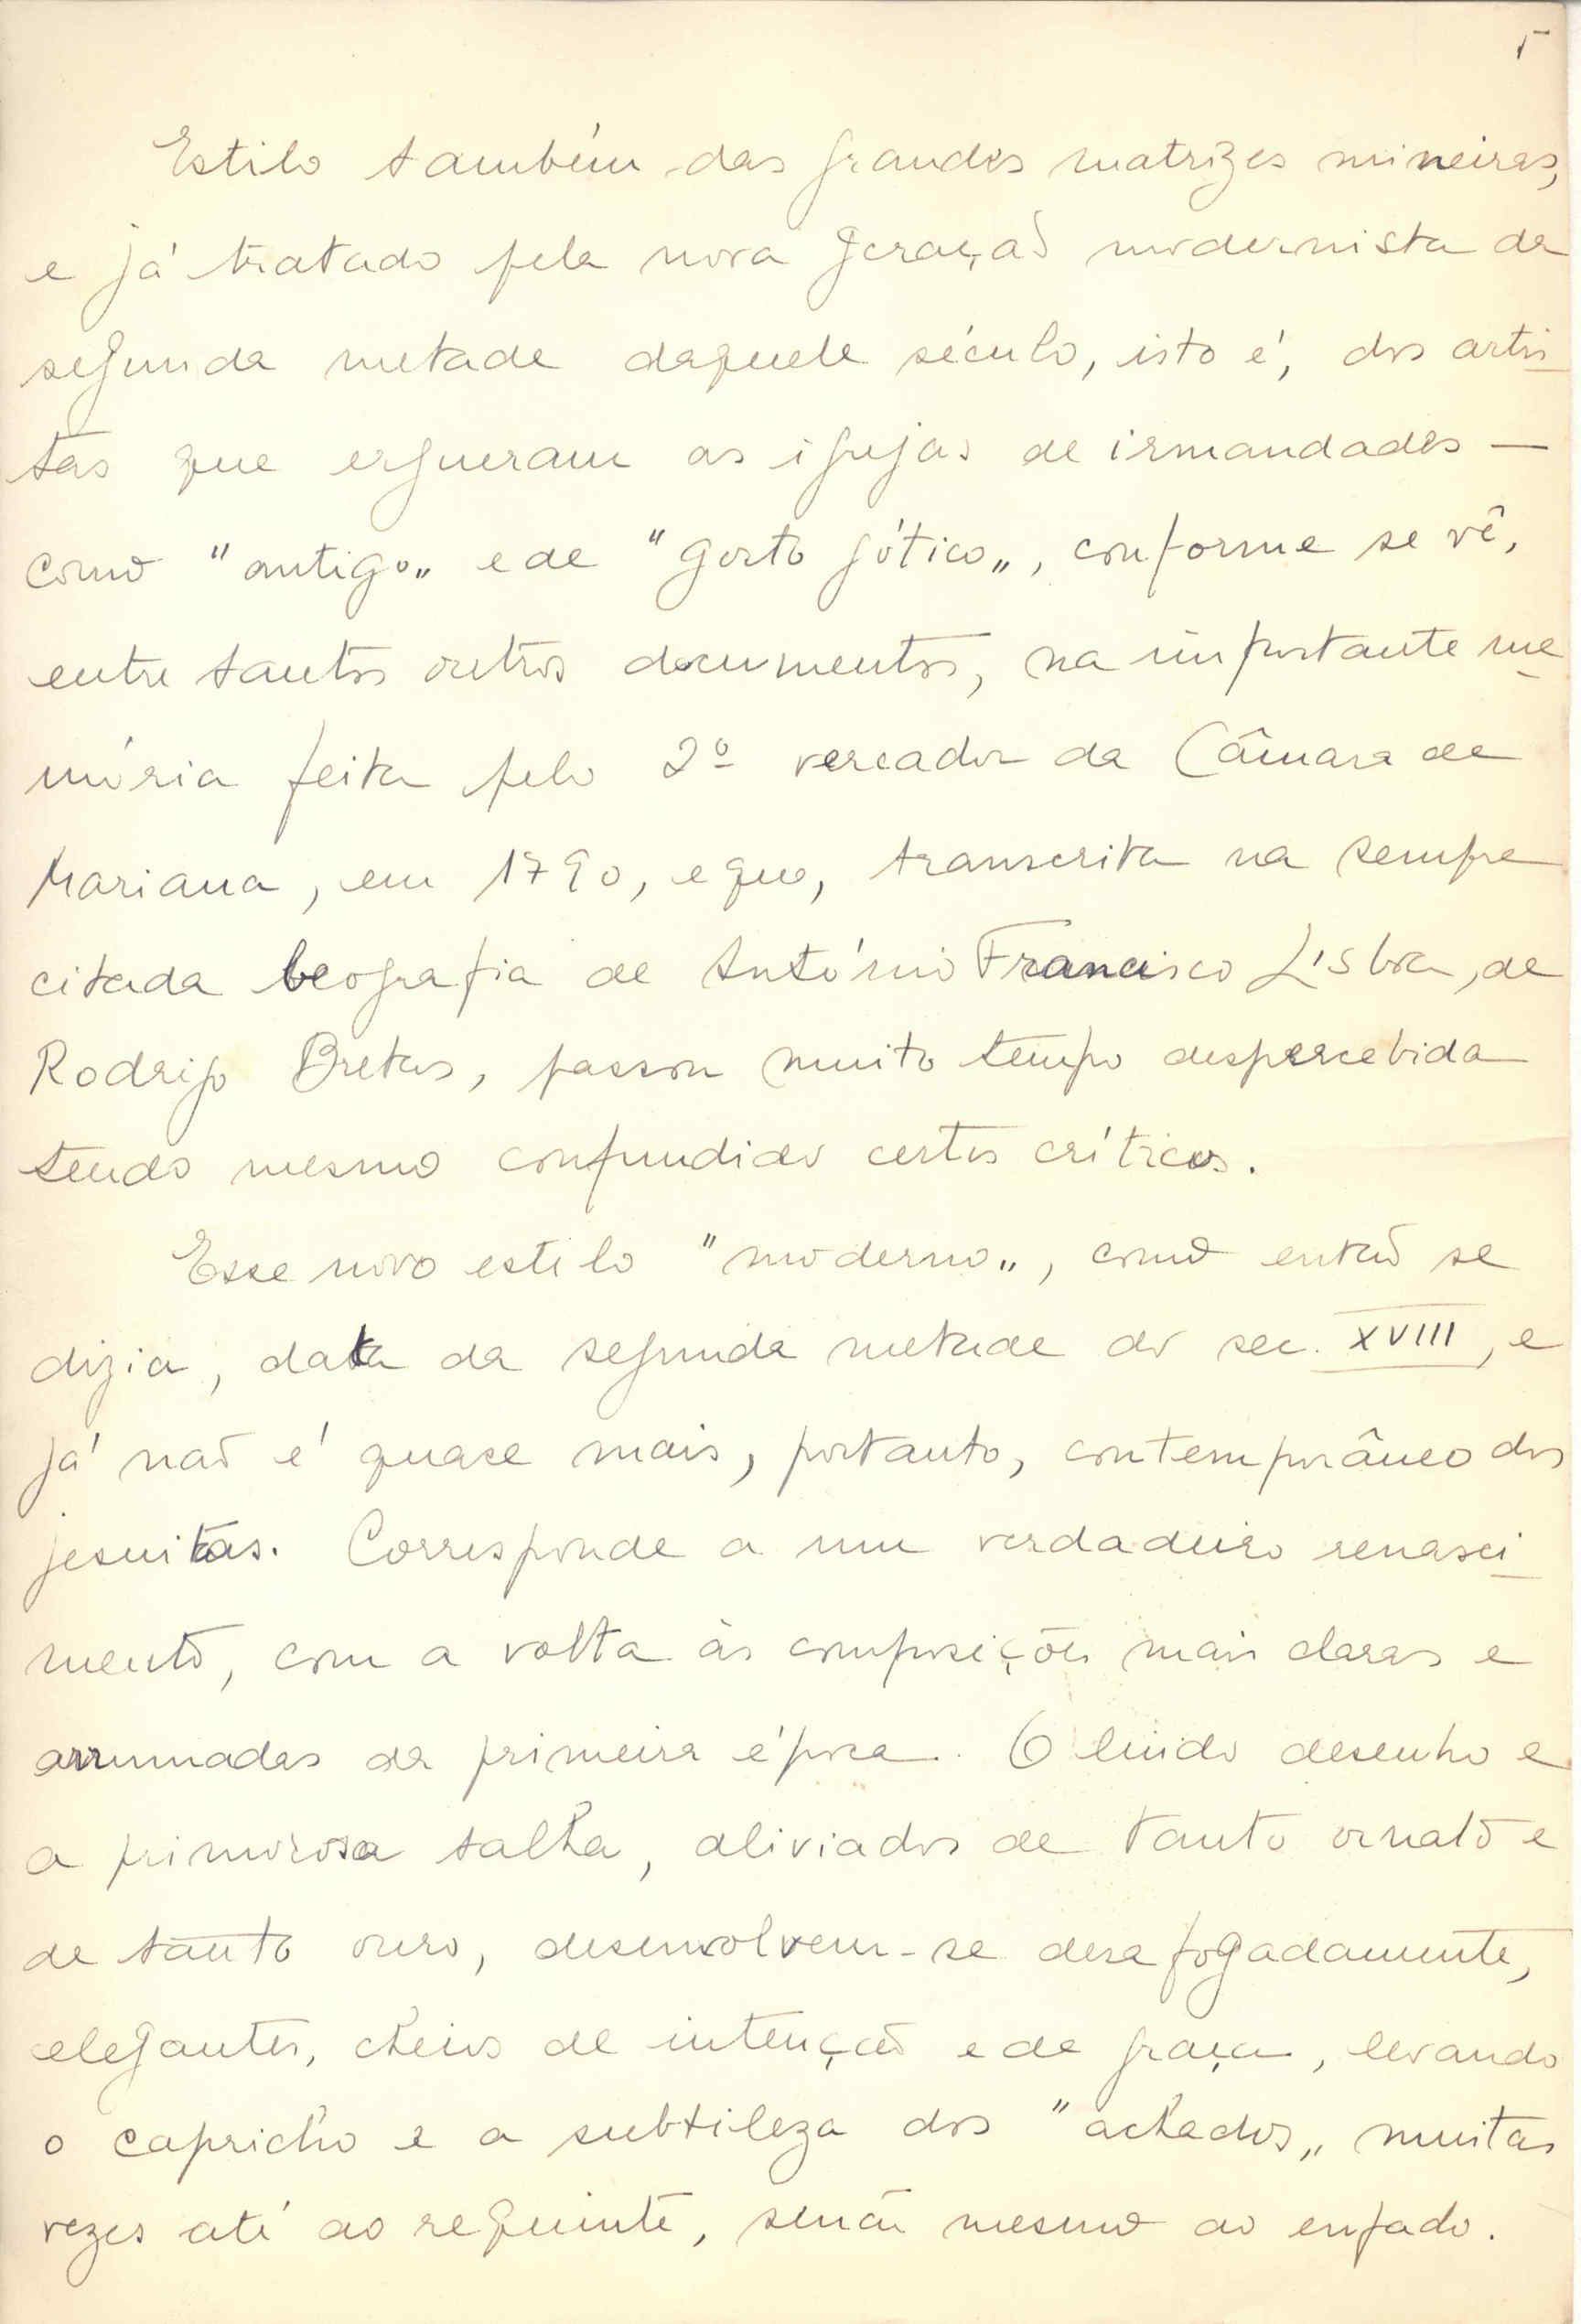 5
Estilo também das grandes matrizes mineiras,
e já tratado pela nova geração modernista da
segunda metade daquele século, isto é, dos artis
tas que ergueram as igrejas de irmandades —
como "antigo„ e de "gosto gótico„, conforme se vê,
entre tantos outros documentos, na importante me
mória feita pelo 2º vereador da Câmara de
Mariana, em 1790, e que, transcrita na sempre
citada beografia de António Francisco Lisboa, de
Rodrigo Bretas, passou muito tempo despercebida
tendo mesmo confundido certos críticos.
Esse novo estilo "moderno„, como então se
dizia, data da segunda metade do sec. XVIII, e
já não é quase mais, portanto, contemporâneo dos
jesuitas. Corresponde a um verdadeiro renasci
mento, com a volta às composições mais claras e
arrumadas da primeira época. O lindo desenho e
a primorosa talha, aliviados de tanto ornato e
de tanto ouro, desenvolvem-se desafogadamente,
elegantes, cheios de intenção e de graça, levando
o capricho e a subtileza dos "achados„ muitas
vezes até ao requinte, senão mesmo ao enfado.